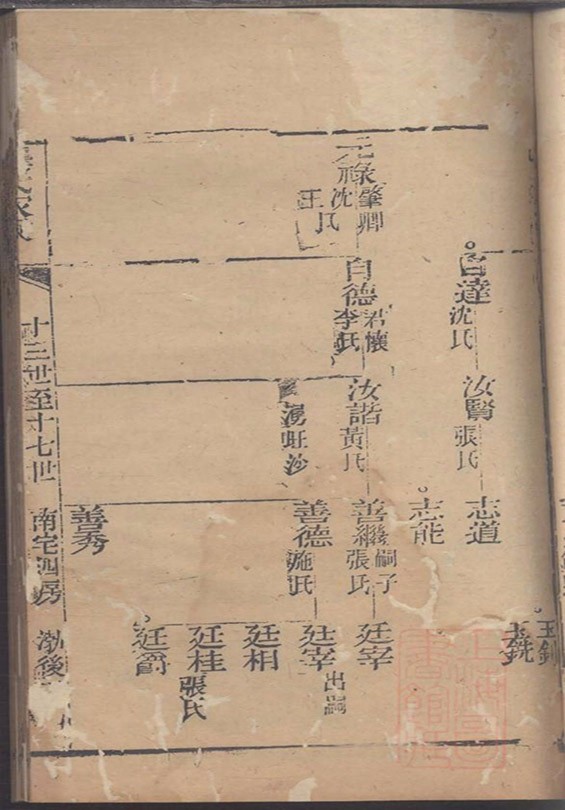 元祿
肇卿
沈氏
王氏
自達
沈氏
自德
君懷
李氏
汝賢
張氏
汝諧
黃氏
湧旺沙
志道
志能
善繼
嗣子
張氏
善德
施氏
善秀
玉銑
廷宰
廷宰
出嗣
廷相
廷桂
張氏
廷爵
十三世至十七世
南宅四房
渤後